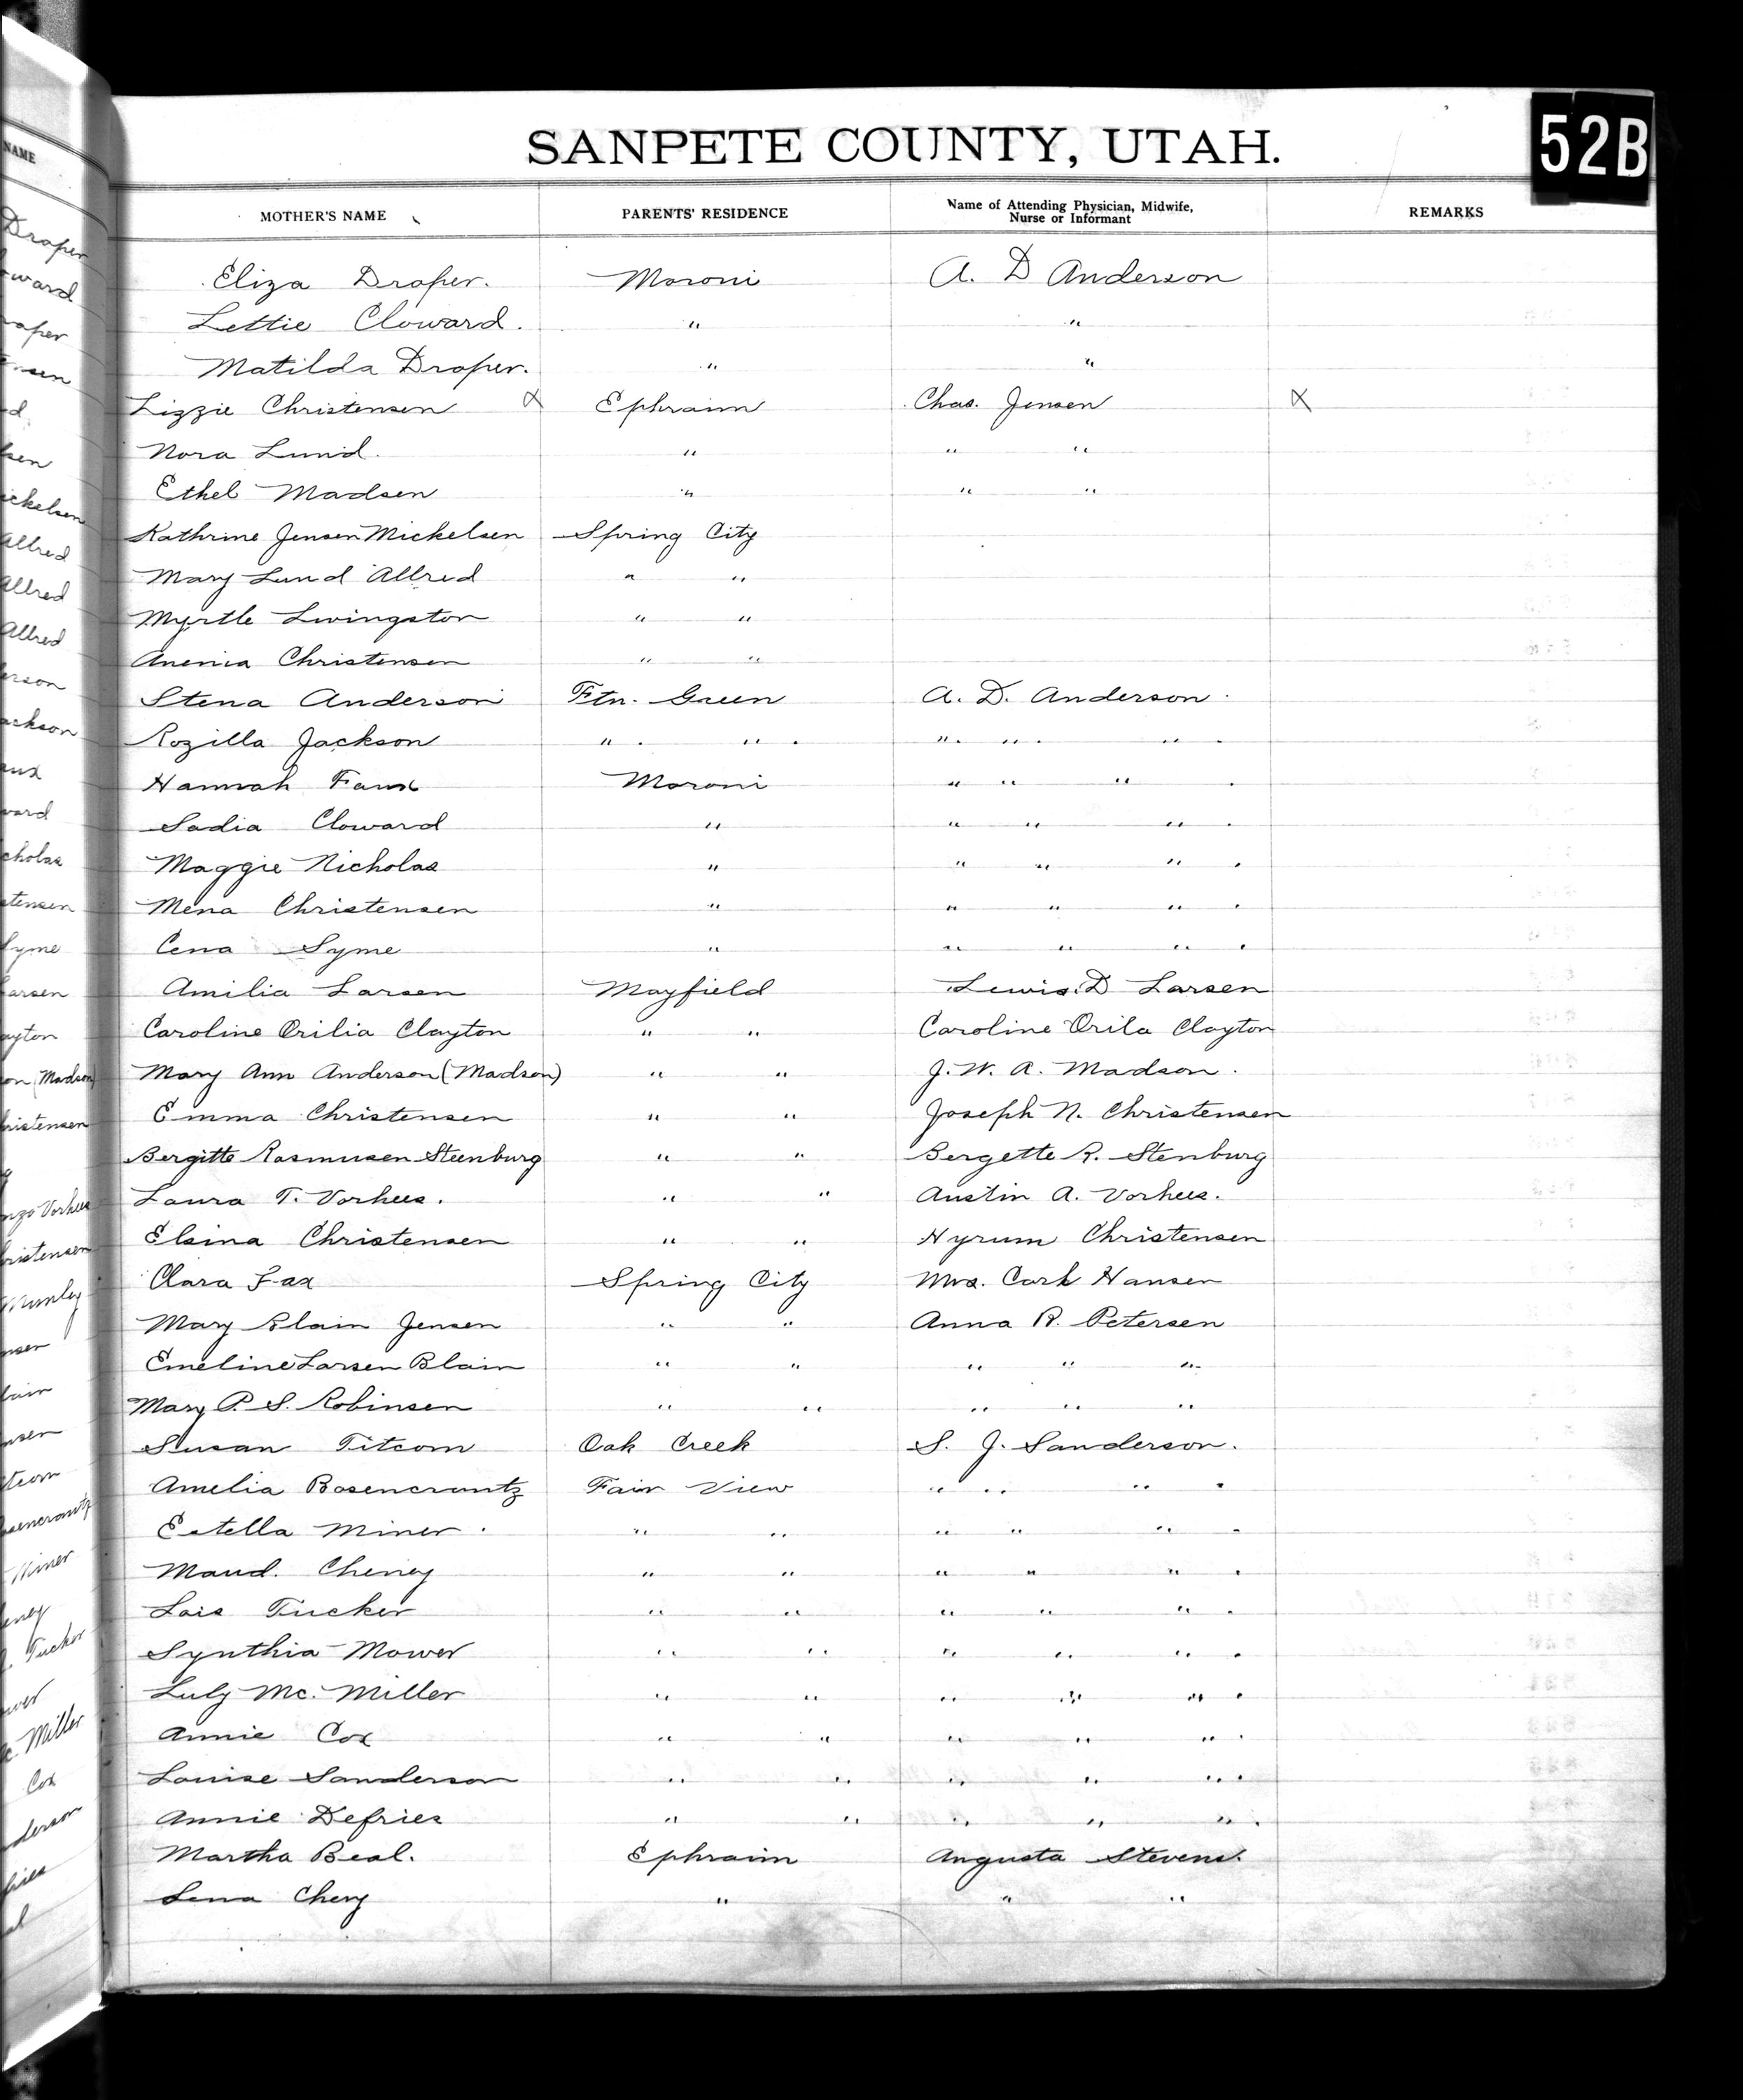 SANPETE COUNTY, UTAH.
52B
NAME
MOTHER'S NAME PARENTS' RESIDENCE Name of Attending Physician, Midwife, Nurse or Informant REMARKS
Draper Eliza Draper. Moroni A. D Anderson
ward Lettie Cloward. " "
aper Matilda Draper. " "
sen Lizzie Christensen X Ephraim Chas. Jensen X
d. Nora Lund. " " "
sen Ethel Madsen " " "
ickelsen Kathrine Jensen Mickelsen Spring City
Allred Mary Lund Allred " "
Allred Myrtle Livingston " "
Allred Anenia Christensen " "
erson Stena Anderson Ftn. Green A. D. Anderson.
ackson Rozilla Jackson " . " . " . " . " .
aux Hannah Faux Moroni " " " .
ward Sadia Cloward " " " " .
cholas Maggie Nicholas " " " " .
stensen Mena Christensen " " " " .
Syme Cena Syme " " " " .
arsen Amilia Larsen Mayfield Lewis. D Larsen
ayton Caroline Orilia Clayton " " Caroline Orila Clayton
on (Madson) Mary Ann Anderson (Madson) " " J. W. A. Madson.
hristensen Emma Christensen " " Joseph N. Christensen
g Bergitte Rasmusen Steenburg " " Bergette R. Stenburg
nzo Vorhees Laura T. Vorhees. " " Austin A. Vorhees.
hristensen Elsina Christensen " " Hyrum Christensen
Clara Fax Spring City Mrs. Carh Hansen
nsen Mary Blain Jensen " " Anna R. Petersen
lain Emeline Larsen Blain " " " " "
nsen Mary P. S. Robinsen " " " " "
tcom Susan Titcom Oak Creek S. J. Sanderson.
sencrantz Amelia Rosencrantz Fair View " " " .
Miner Estella Miner. " " " " " .
eney Maud. Cheney " " " " " .
. Tucker Lois Tucker " " " " " .
wer Synthia Mower " " " " " .
c. Miller Luly Mc. Miller " " " " " .
Cox Annie Cox " " " " " .
derson Louise Sanderson " " " " " .
fries Annie Defries " " " " " .
al Martha Beal. Ephraim Augusta Stevens.
Lena Chery " " "